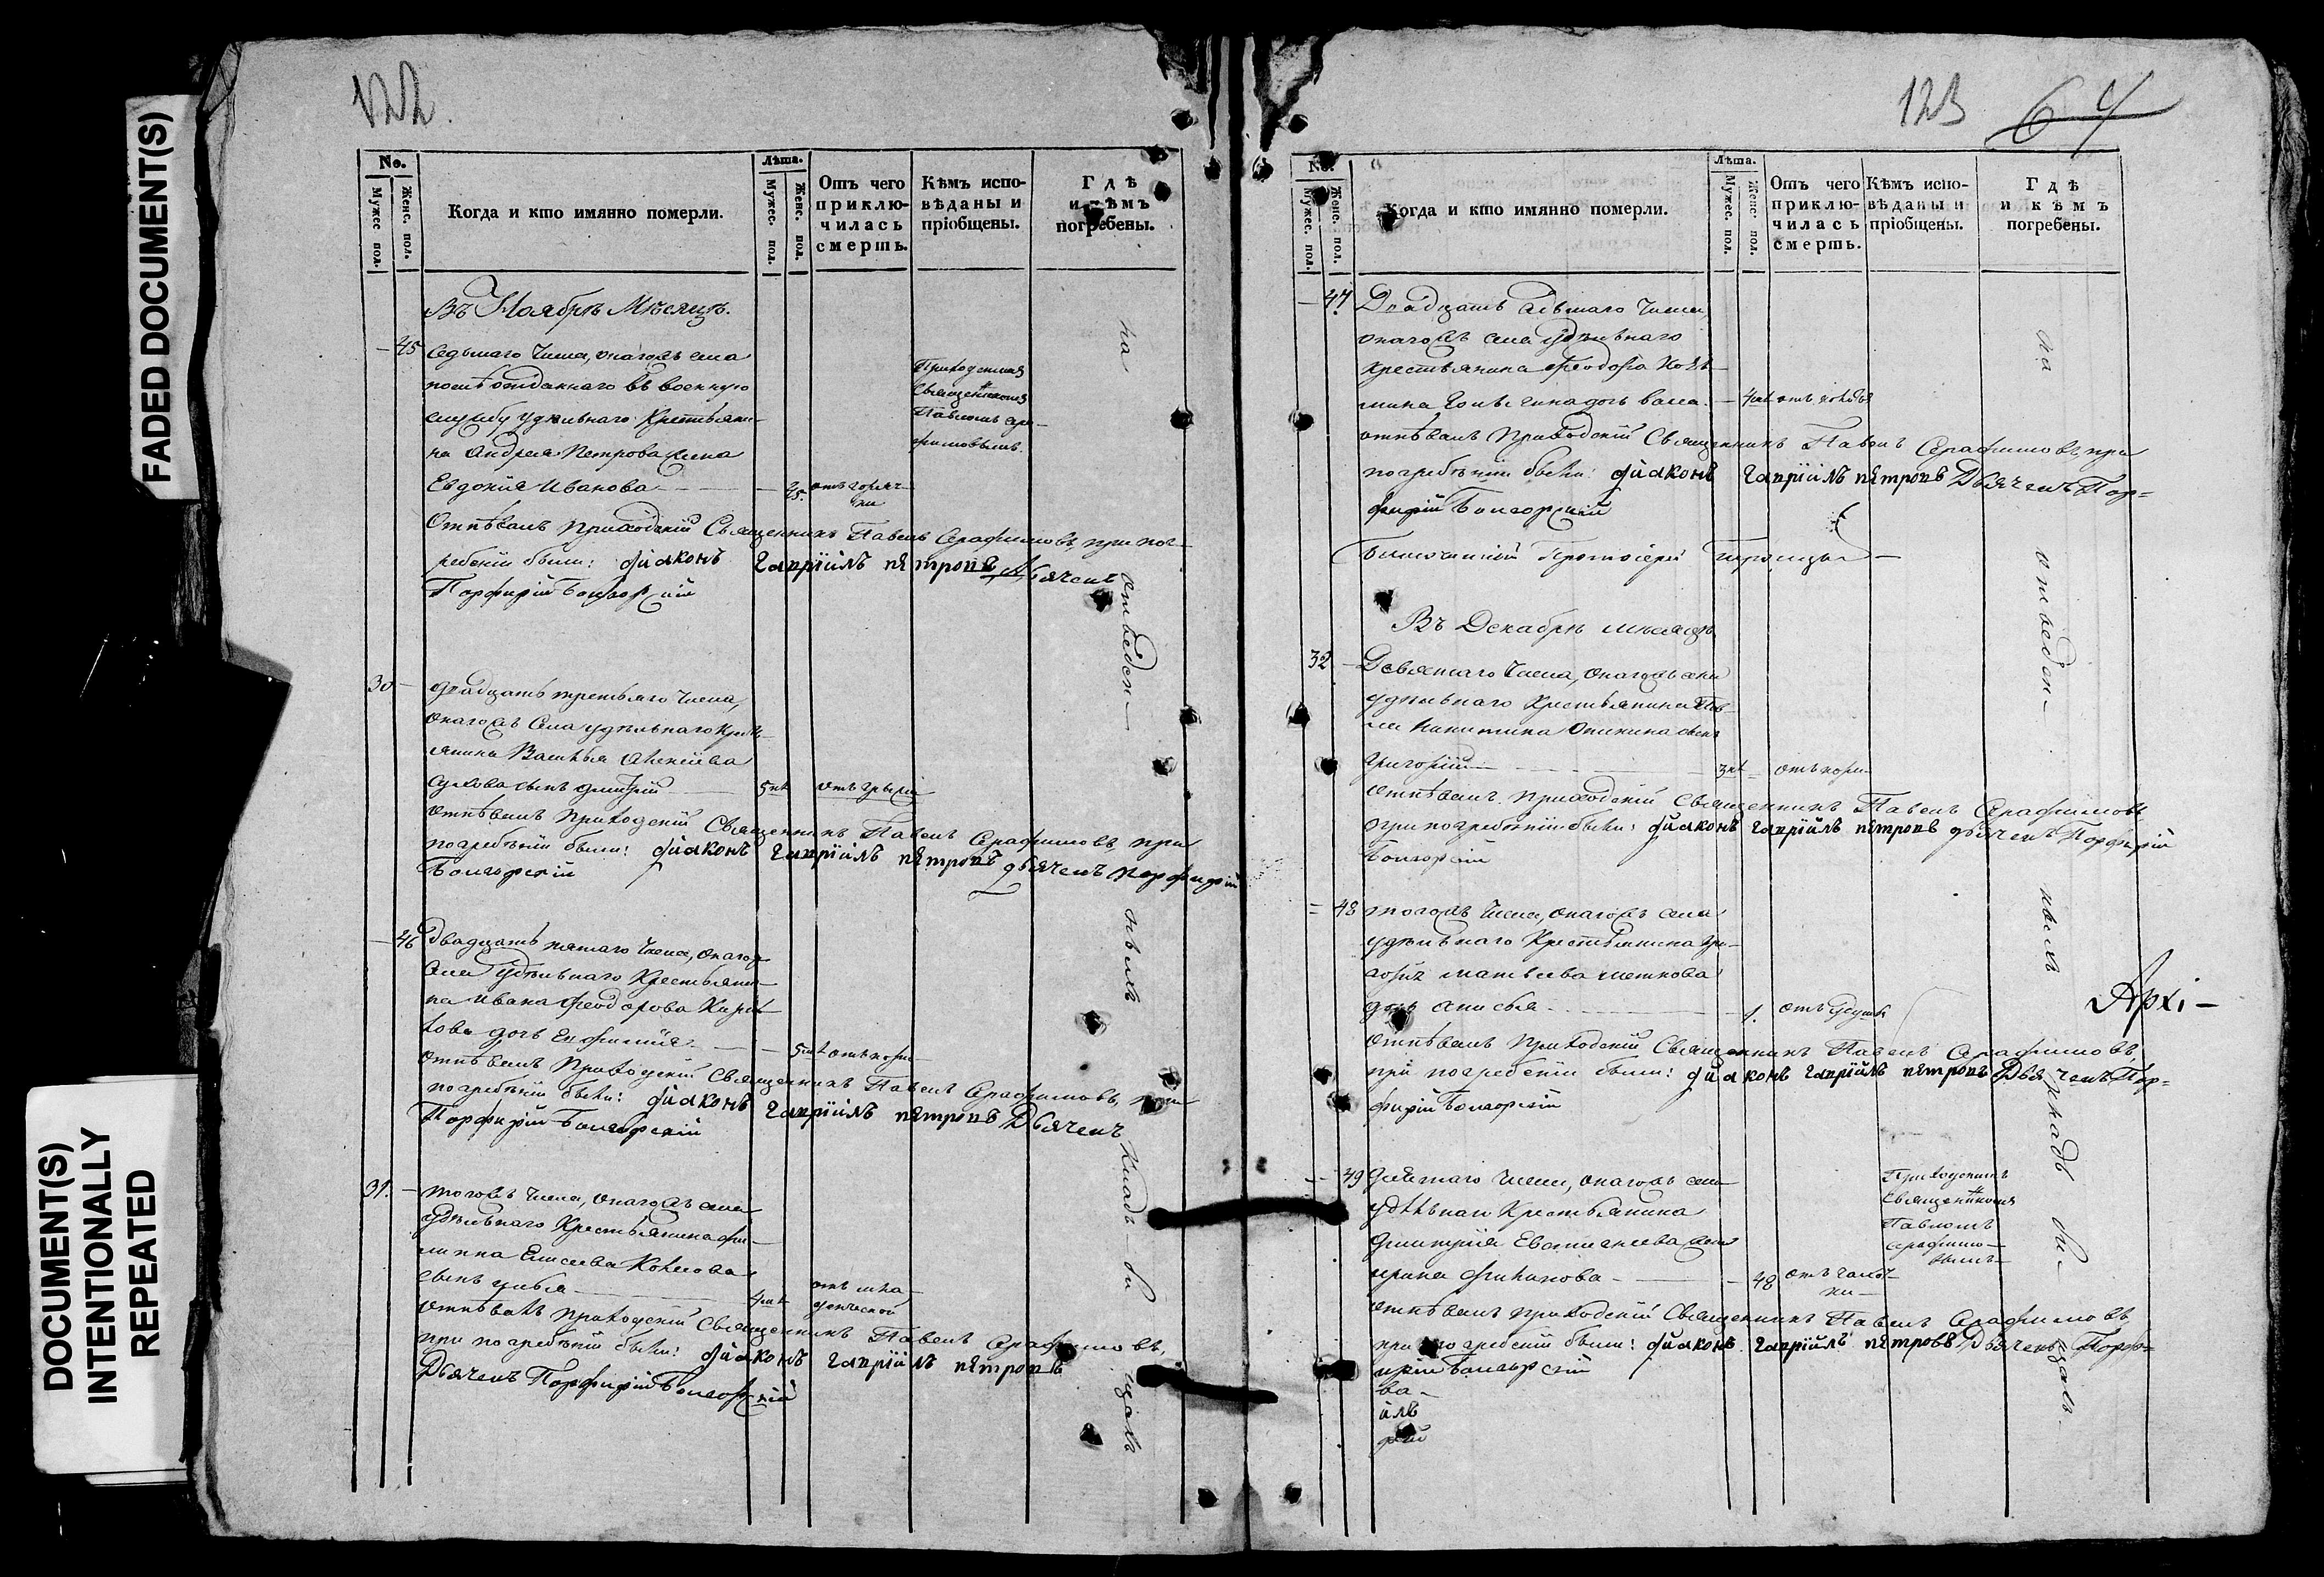 FADED DOCUMENT(S)
DOCUMENT(S)
INTENTIONALLY
REPEATED
122.
No.
Мужес. пол.
Женс. пол.
Когда и кто имянно померли.
Лѣта.
Мужес. пол.
Женс. пол.
Отъ чего
приклю-
чилась
смерть.
Кѣмъ испо-
вѣданы и
пріобщены.
Гдѣ
и кѣмъ
погребены.
Въ Ноябрѣ Мѣсяцѣ.
45 Седьмаго Числа, онагожъ села
отданнаго въ военную
службу удѣльнаго Крестьяни-
на Андрея Петрова жена
Евдокія Иванова 45. отъ горяч-
ки
Приходскимъ
Священникомъ
Павломъ Сера-
фимовымъ.
Отпѣвалъ Приходскій Священникъ Павелъ Серафимовъ, при пог-
ребеніи были: діаконъ гавріилъ петровъ, дьячекъ
Порфирій Болгорскій
30 двадцать третьяго числа,
онагожъ Села удѣльнаго Крест-
янина Василья Алексѣева
сынъ Дмитрій 5 отъ грыжи
отпѣвалъ Приходскій Священникъ Павелъ Серафимовъ, при
погребѣніи были: діаконъ гавріилъ петровъ дьячекъ порфирій
Болгорскій
46 двадцать пятаго Числа, онагож
Села Удѣльнаго Крестьяни-
на Ивана Феодорова
дочь Ефимія 5 отъ кори
отпѣвалъ Приходскій Священникъ Павелъ Серафимовъ, при
погребѣніи были: діаконъ гавріилъ петровъ Дьячекъ
Порфирій Болгорскій
31. тогожъ Числа, онагожъ села
удѣльнаго Крестьянина Фи-
липпа Елисеева
сынъ Илья 4 отъ мла-
денческой
отпѣвалъ Приходскій Священникъ Павелъ Серафимовъ,
при погребѣніи были: діаконъ гавріилъ петровъ
Дьячекъ Порфирій Болгорскій
на отведен- номъ кладъ би щахъ
123 64
No.
Мужес. пол.
Женс. пол.
Когда и кто имянно померли.
Лѣта.
Мужес. пол.
Женс. пол.
Отъ чего
приклю-
чилась
смерть.
Кѣмъ испо-
вѣданы и
пріобщены.
Гдѣ
и кѣмъ
погребены.
47 Двадцать седьмаго Числа,
онагожъ села удѣльнаго
крестьянина Феодора Козь-
мина дочь 4
отпѣвалъ Приходскій Священникъ Павелъ Серафимовъ, при
погребѣніи были: діаконъ гавріилъ петровъ Дьячекъ Пор=
фирій Болгорскій
Благочинный Протоіерей
Въ Декабрѣ мѣсяцѣ
32 Девятаго Числа, онагожъ села
удѣльнаго Крестьянина Пав-
ла Никитина сынъ
Григорій 3 отъ кори
отпѣвалъ Приходскій Священникъ Павелъ Серафимовъ,
при погребѣніи были: діаконъ гавріилъ петровъ дьячекъ Порфирій
Болгорскій
48 тогожъ Числа, онагожъ села
удѣльнаго Крестьянина Гри-
горія Матвѣева
дочь Анисья 1. отъ удушья
отпѣвалъ Приходскій Священникъ Павелъ Серафимовъ,
при погребеніи были: діаконъ гавріилъ петровъ Дьячекъ Пор=
фирій Болгорскій
49 девятаго числа, онагожъ села
удѣльнаго Крестьянина
Дмитрія жена
Ирина 48 отъ горяч-
ки
Приходскимъ
Священникомъ
Павломъ
Серафимо-
вымъ
отпѣвалъ приходскій Священникъ Павелъ Серафимовъ,
при погребеніи были: діаконъ гавріилъ петровъ Дьячекъ Порфи=
рій Болгорскій
ва-
илъ
рій
на отведен- номъ кладъ би- щахъ
Архі-